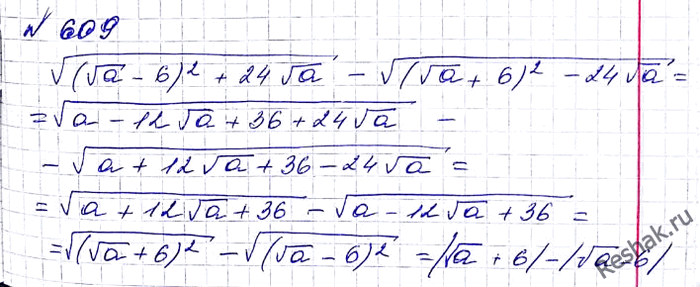 № 609
√((√a - 6)² + 24√a) - √((√a + 6)² - 24√a) =
= √(a - 12√a + 36 + 24√a) -
- √(a + 12√a + 36 - 24√a) =
= √(a + 12√a + 36) - √(a - 12√a + 36) =
= √((√a + 6)²) - √((√a - 6)²) = |√a + 6| - |√a - 6|
Reshak.ru